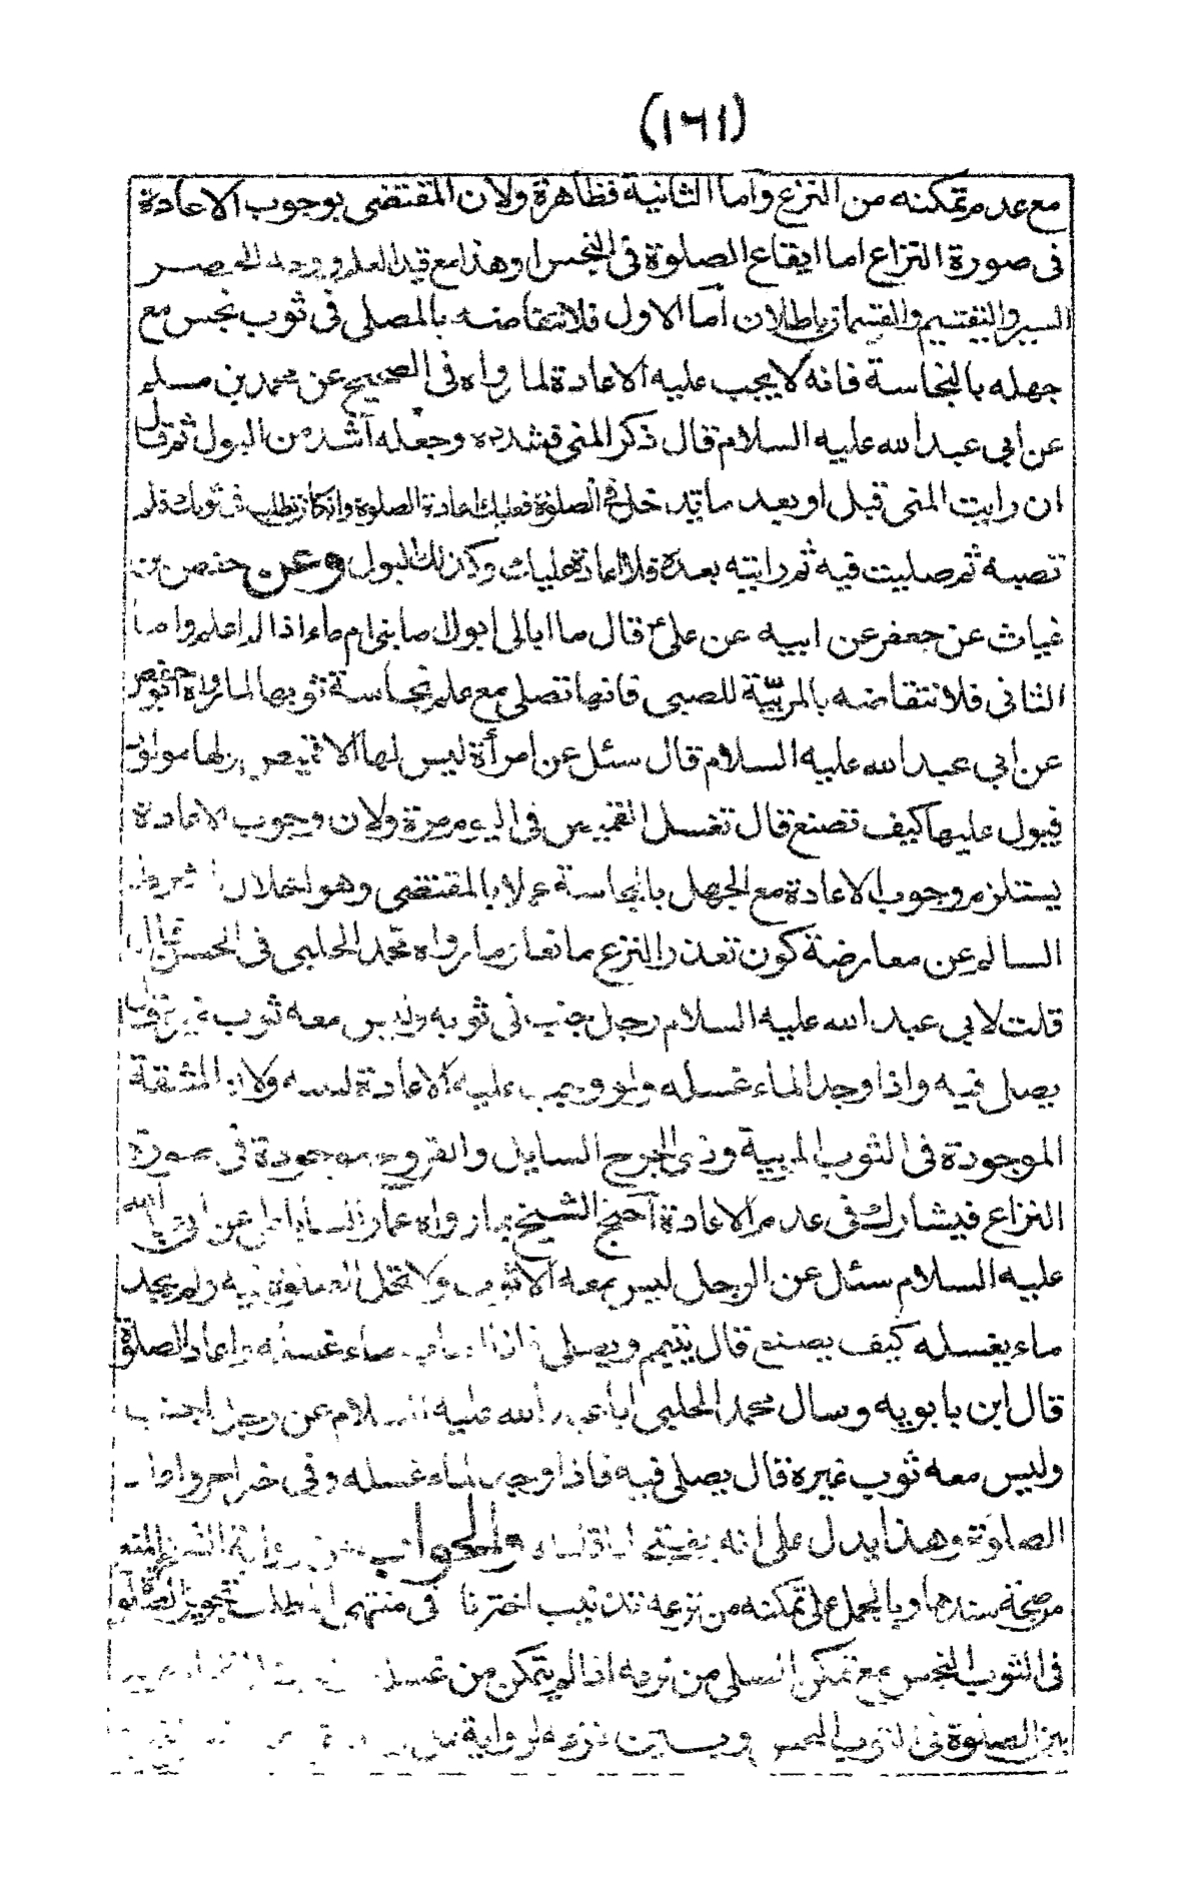 (١٦١)
مع عدم تمكنه من النزع وأما الثانية فظاهرة ولان المقتضى بوجوب الاعادة
فى صورة النزاع اما ايقاع الصلوة فى النجس او هذا مع قيد العلم ووجه الحصر
السبر والتقسيم والقسمان باطلان أما الاول فلانتقاضه بالمصلى فى ثوب نجس مع
جهله بالنجاسة فانه لا يجب عليه الاعادة لما رواه فى الصحيح عن محمد بن مسلم
عن ابى عبد الله عليه السلام قال ذكر المنى فشدده وجعله أشد من البول ثم قال
ان رايت المنى قبل او بعد ما تدخل فى الصلوة فعليك اعادة الصلوة وان كان نظرت فى ثوبك فلم
تصبه ثم صليت فيه ثم رايته بعده فلا اعادة عليك وكذلك البول وعن حفص بن
غياث عن جعفر عن ابيه عن على ع قال ما ابالى ابول اصابنى ام ماء اذا لم اعلم واما
الثانى فلانتقاضه بالمربّية للصبى فانها تصلى مع علم نجاسة ثوبها لما رواه ابو حفص
عن ابى عبد الله عليه السلام قال سئل عن امرأة ليس لها الا قميص ولها مولود
فيبول عليها كيف تصنع قال تغسل القميص فى اليوم مرة ولان وجوب الاعادة
يستلزم وجوب الاعادة مع الجهل بالنجاسة عملا بالمقتضى وهو اخلال الشرط
السالم عن معارضة كون تعذر النزع مانعا وما رواه محمد الحلبى فى الحسن قال
قلت لابى عبد الله عليه السلام رجل جنب فى ثوبه وليس معه ثوب غيره قال
يصلى فيه واذا وجد الماء غسله ولو وجب عليه الاعادة لبينه ولان المشقة
الموجودة فى الثوب المربية وذى الجرح السايل والقروح موجودة فى صورة
النزاع فيشارك فى عدم الاعادة أحتج الشيخ بما رواه عمار الساباطى عن ابى عبد الله
عليه السلام سئل عن الرجل ليس معه الا ثوب ولا تحل الصلوة فيه ولم يجد
ماء يغسله كيف يصنع قال يتيمم ويصلى فاذا اصاب ماء غسله واعاد الصلوة
قال ابن بابويه وسال محمد الحلبى ابا عبد الله عليه السلام عن رجل اجنب
وليس معه ثوب غيره قال يصلى فيه فاذا وجد الماء غسله وفى خبر اخر واعاد
الصلوة وهذا يدل على انه يفتى والجواب من رواية الشيخ المنع
من صحة سندها وبالحمل على تمكنه من نزعه تذنيب اخترنا فى منتهى المطلب تجويز الصلوة
فى الثوب النجس مع تمكن المصلى من نزعه اذا لم يتمكن من غسله
بين الصلوة فى الثوب النجس وبين نزعه لرواية